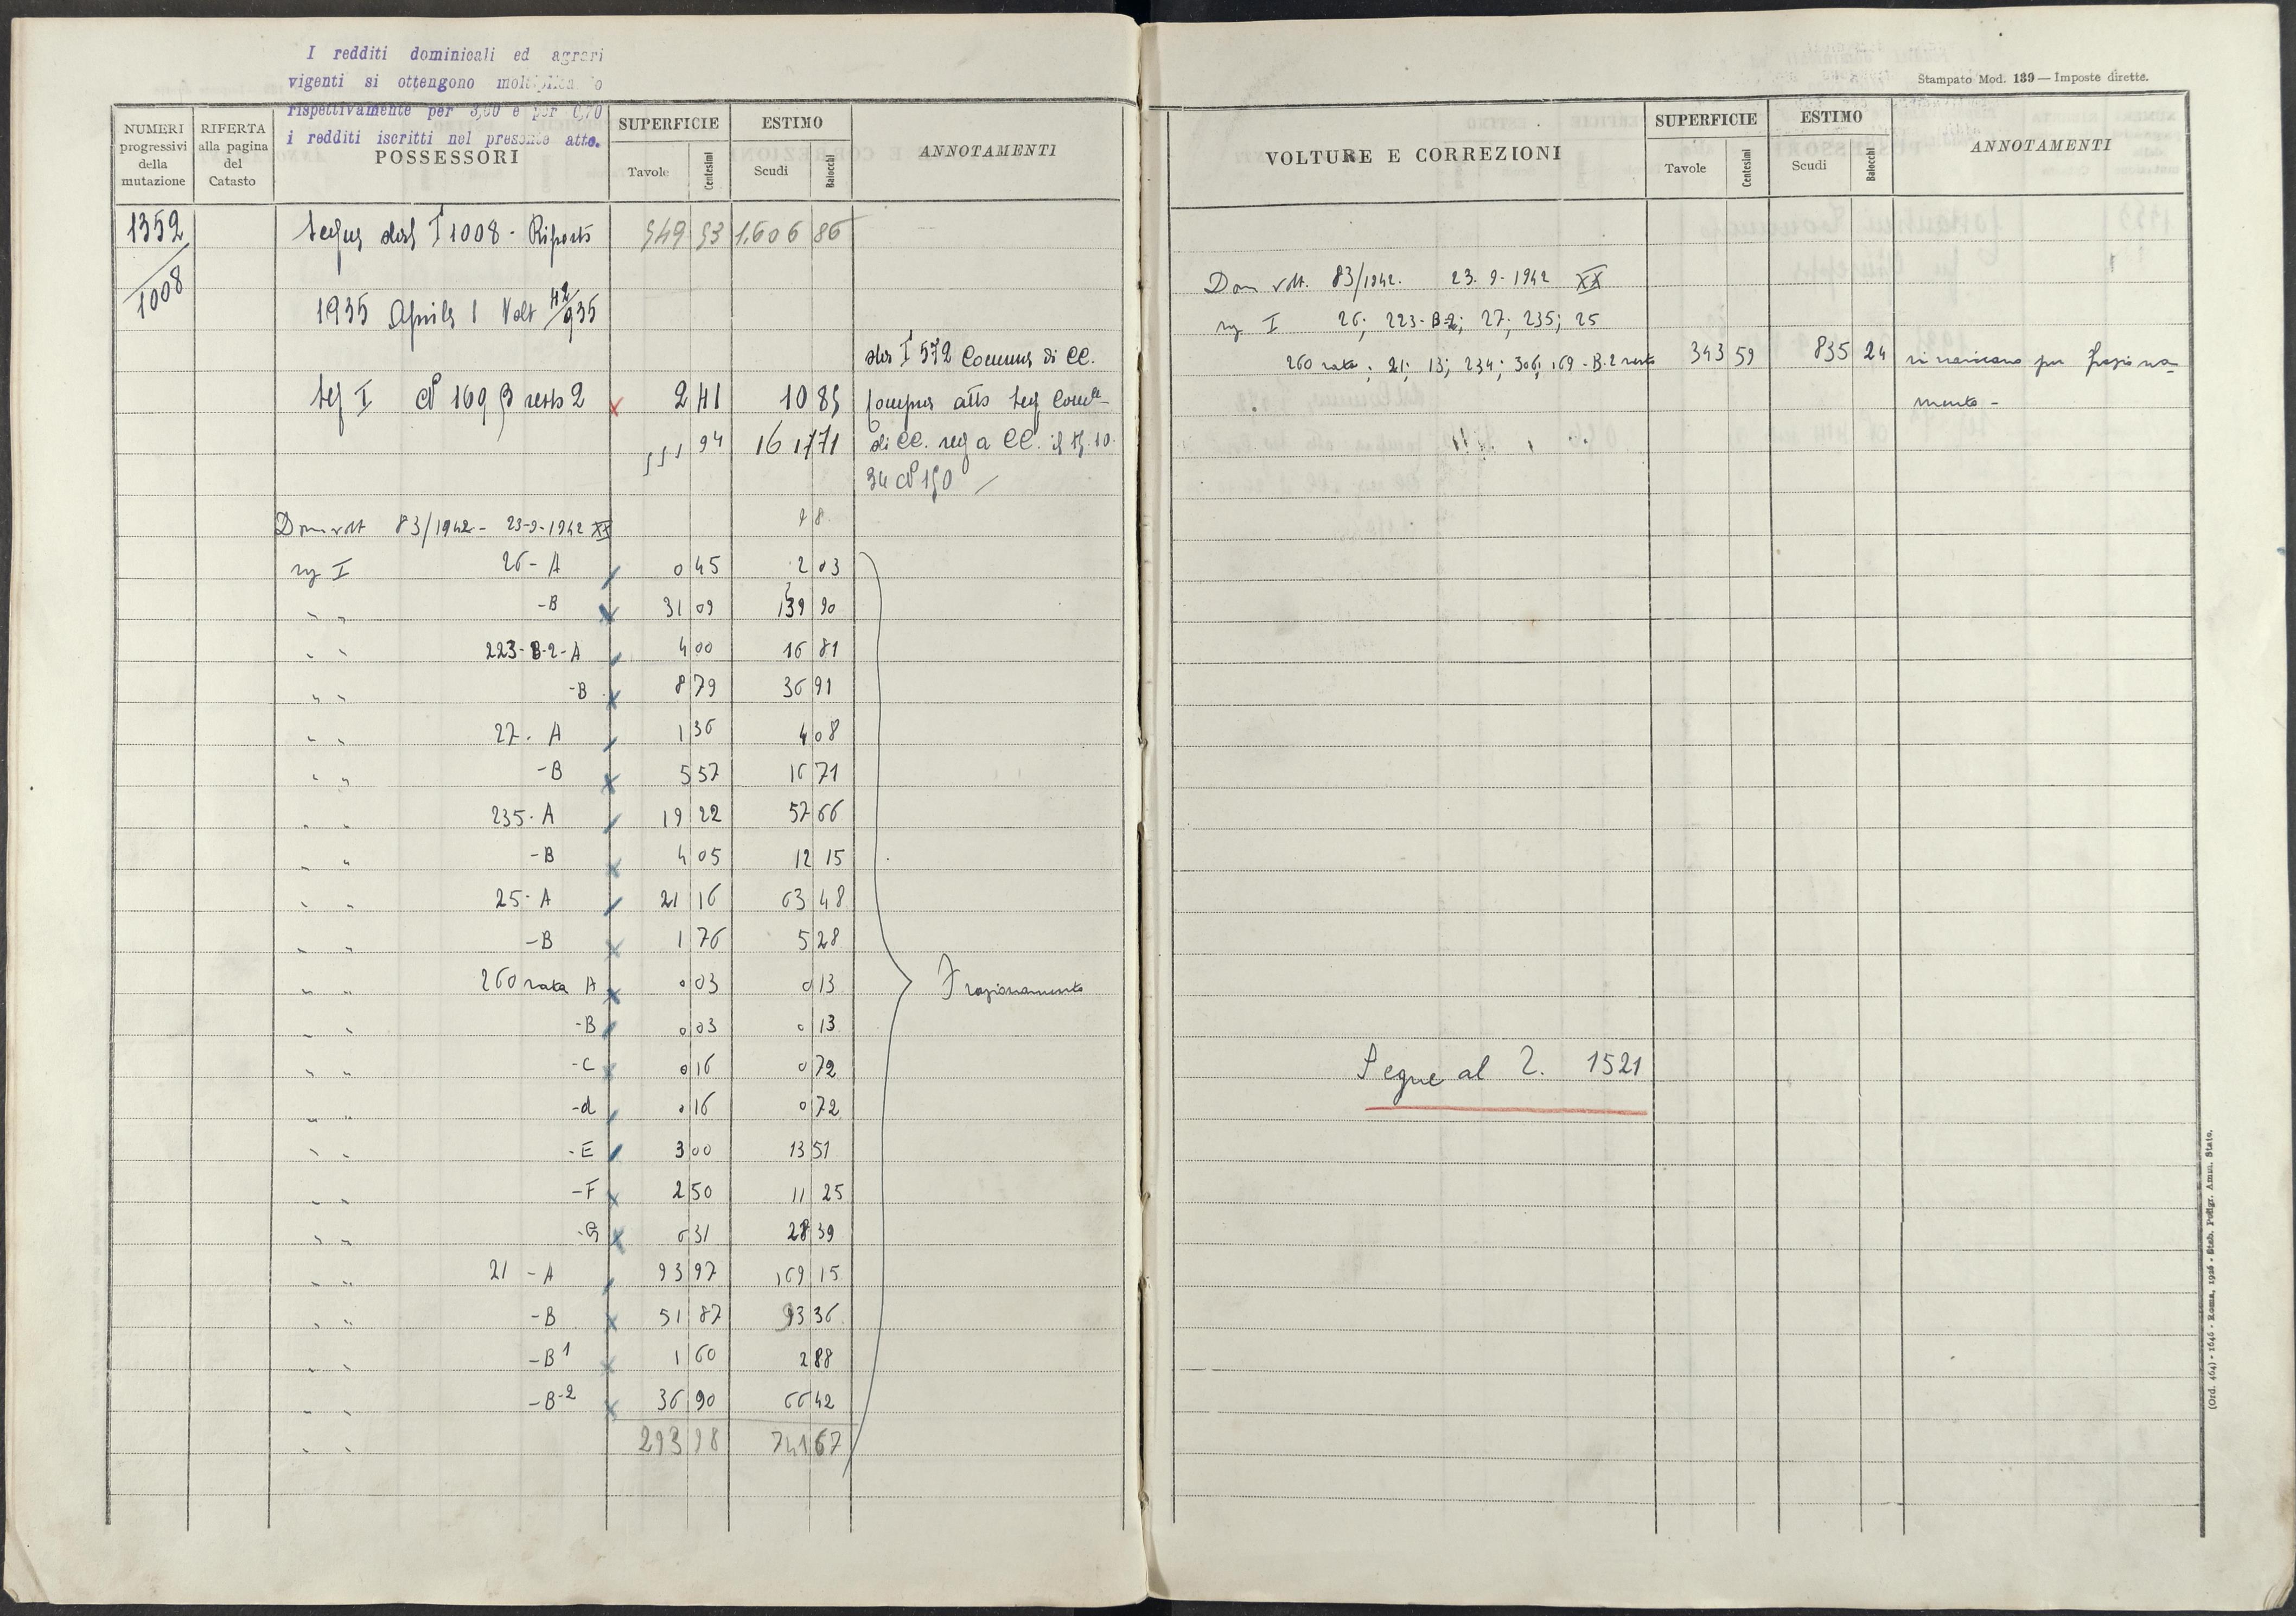 I redditi dominicali ed agrari
vigenti si ottengono moltiplicando
rispettivamente per 3,60 e per 0,70
i redditi iscritti nel presente atto.
NUMERI progressivi della mutazione
RIFERTA alla pagina del Catasto
POSSESSORI
SUPERFICIE
Tavole Centesimi
ESTIMO
Scudi Baiocchi
ANNOTAMENTI
1352 segue dal I 1008 - Riporto 549 53 1.606 86
1008
1935 Aprile 1 Volt 42/935
dal I 572 Comune di CC.
seg I N 169 B resto 2 2 41 10 85 compra atto seg Com
551 94 16 17 71 di CC. reg a CC. il 15.10.
34 N 150
Dom volt 83/1942 - 23-9-1942 XX 98
sez I 26 - A 0 45 2 03
" " - B 31 09 139 90
" " 223-B-2-A 4 00 16 81
" " - B 8 79 36 91
" " 27 - A 1 36 4 08
" " - B 5 57 16 71
" " 235 - A 19 22 57 66
" " - B 4 05 12 15
" " 25 - A 21 16 63 48
" " - B 1 76 5 28
" " 260 rata A 0 03 0 13 Frazionamento
" " - B 0 03 0 13
" " - C 0 16 0 72
" " - d 0 16 0 72
" " - E 3 00 13 51
" " - F 2 50 11 25
" " - G 6 31 28 39
" " 21 - A 93 97 169 15
" " - B 51 87 93 36
" " - B 1 1 60 2 88
" " - B-2 36 90 66 42
" " 293 98 741 67
Stampato Mod. 139 — Imposte dirette.
VOLTURE E CORREZIONI
SUPERFICIE
Tavole Centesimi
ESTIMO
Scudi Baiocchi
ANNOTAMENTI
Dom volt. 83/1942. 23.9.1942 XX
I 26; 223-B-2; 27; 235; 25
260 rata; 21; 13; 234; 306; 169-B.2 resto 343 59 835 24 si scaricano per fraziona-
mento -
Segue al 2. 1521
(Ord. 464) - 1646 - Roma, 1926 - Stab. Poligr. Amm. Stato.